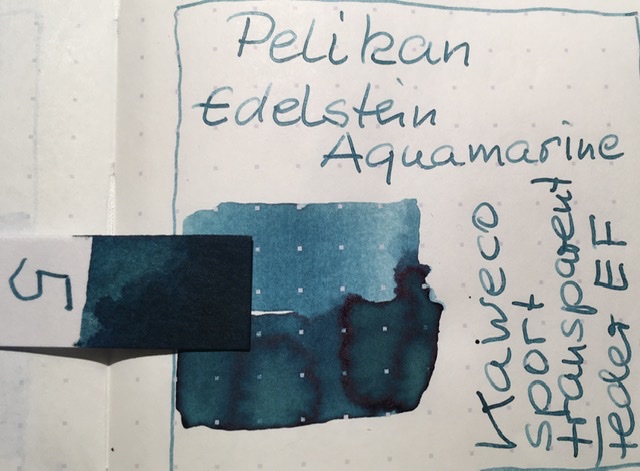 Pelikan
Edelstein
Aquamarine
Kaweco
sport
transparent
Feder EF
5